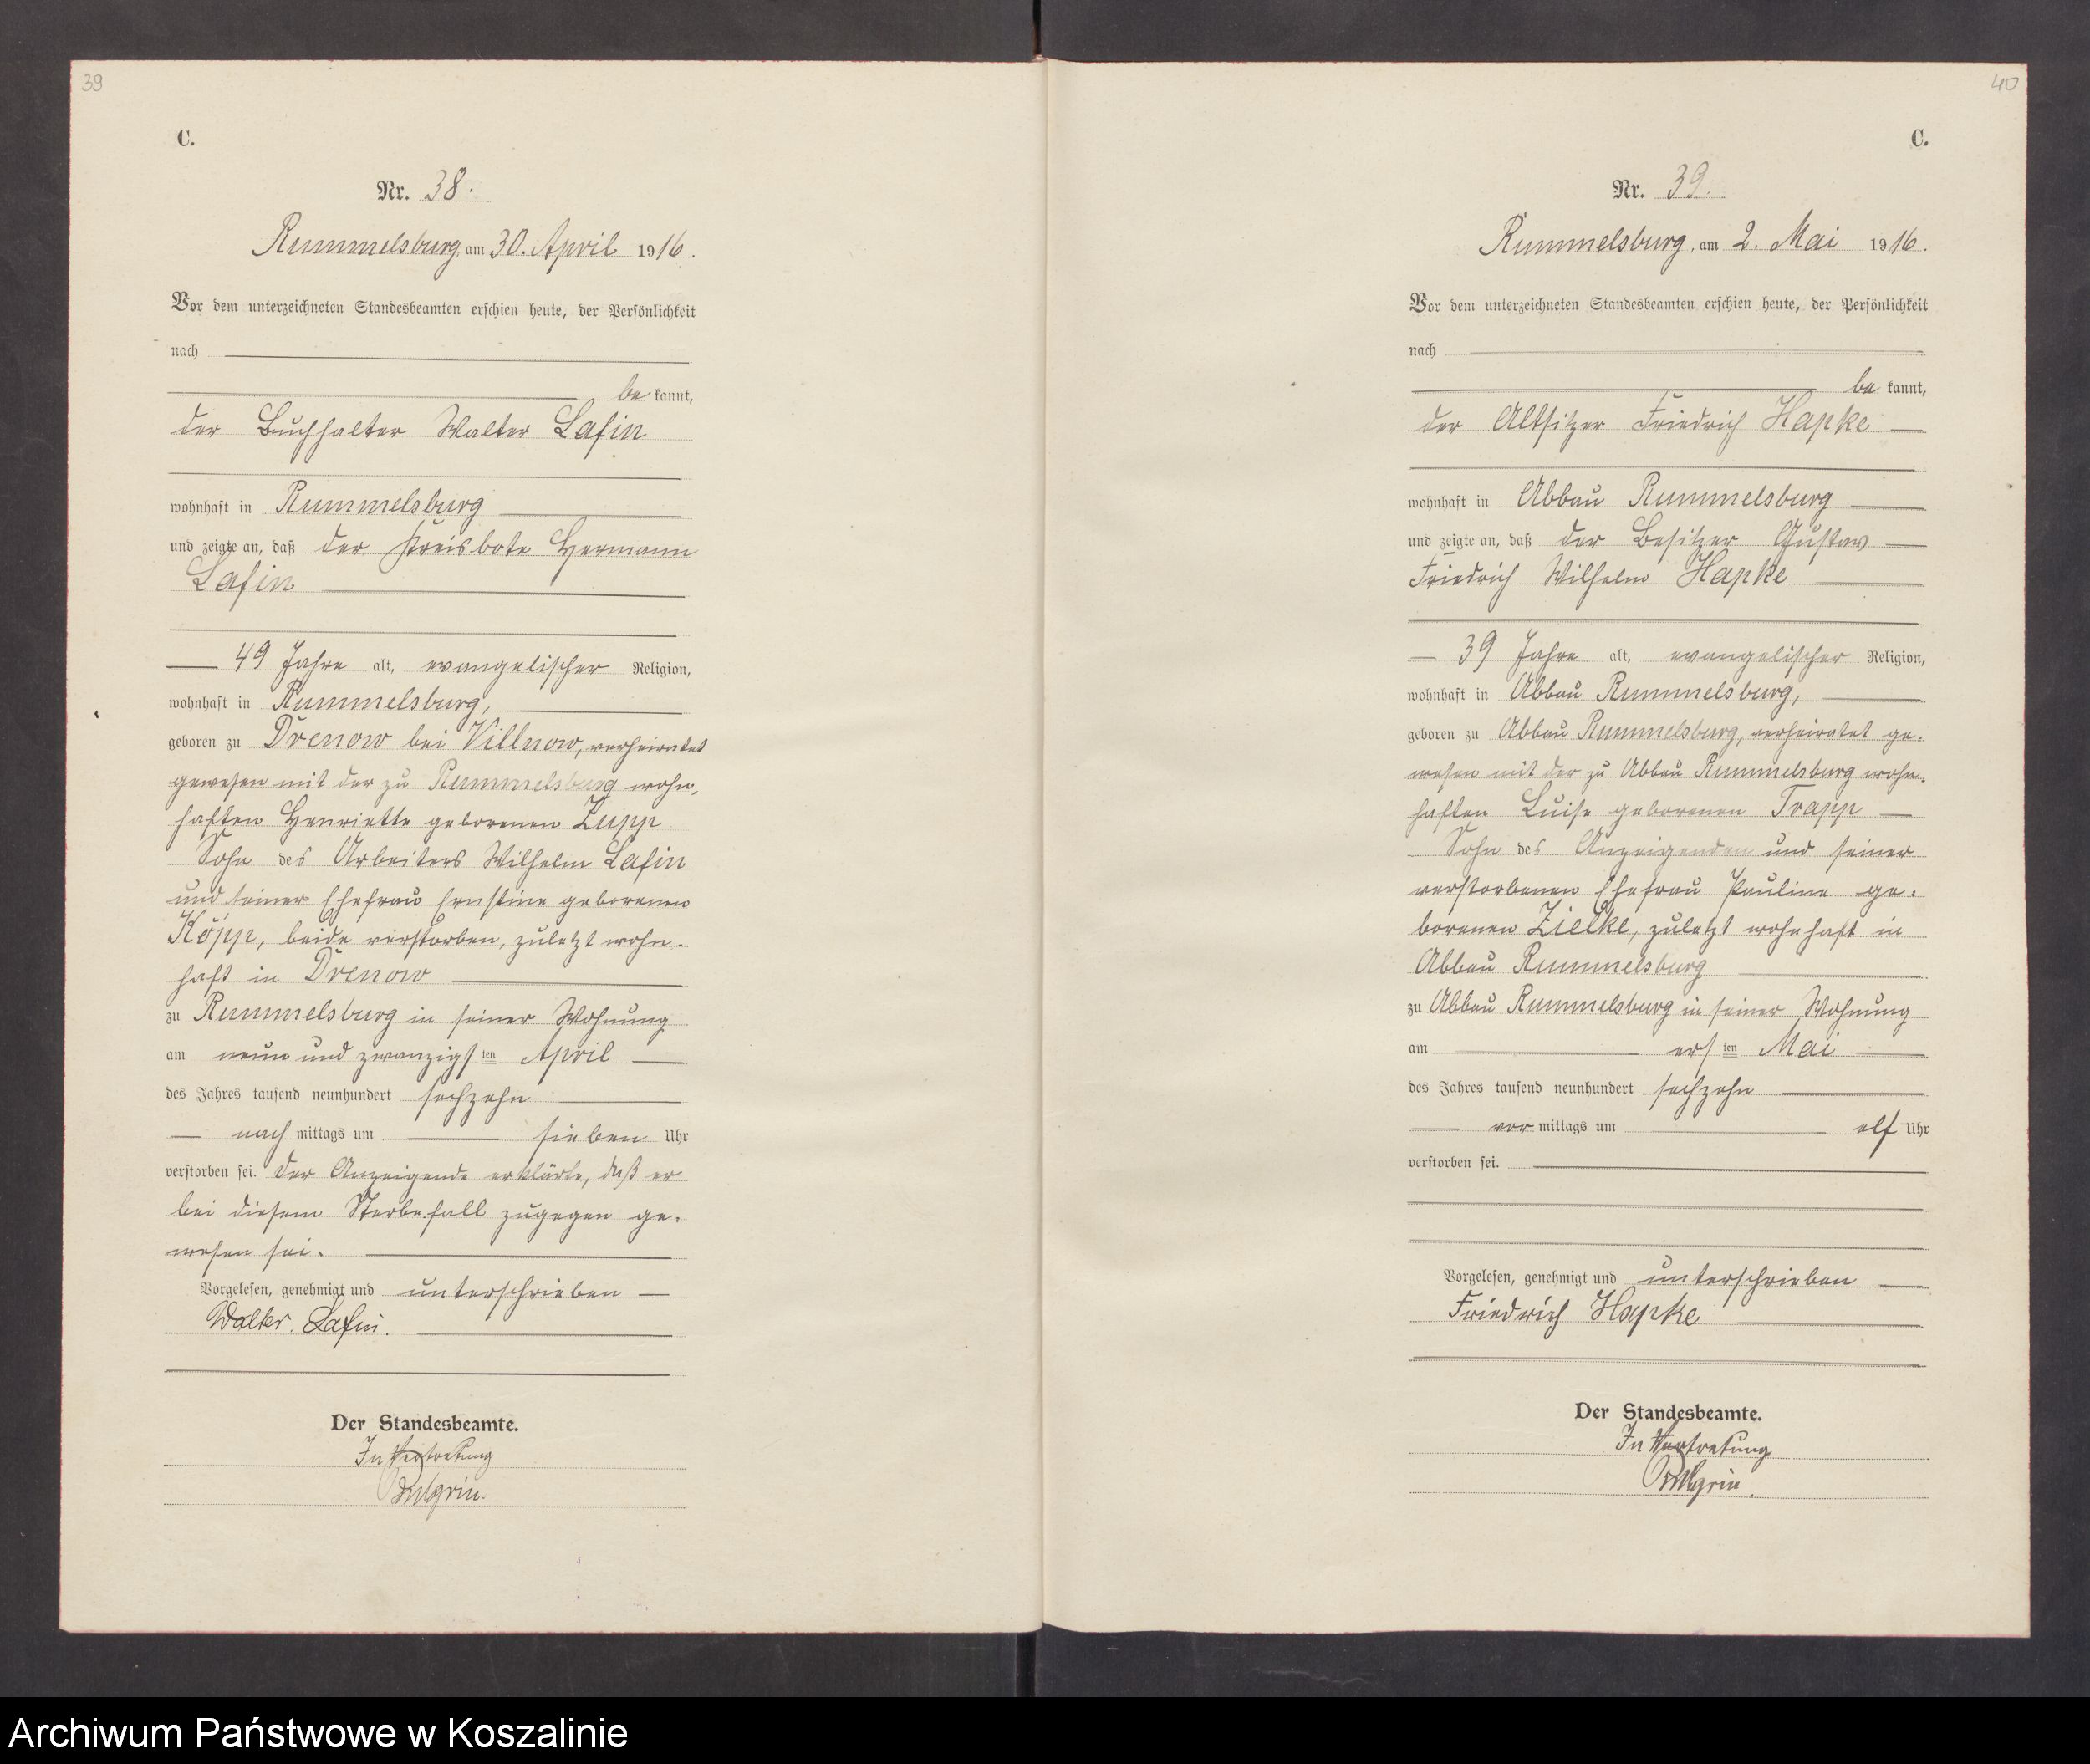 39
C.
Nr. 38.
Rummelsburg, am 30. April 1916.
Vor dem unterzeichneten Standesbeamten erschien heute, der Persönlichkeit
nach
be kannt,
der Buchhalter Walter Lafin
wohnhaft in Rummelsburg
und zeigte an, daß der Kreisbote Hermann
Lafin
49 Jahre alt, evangelischer Religion,
wohnhaft in Rummelsburg,
geboren zu Drenow bei Villnow, verheiratet
gewesen mit der zu Rummelsburg wohn-
haften Henriette geborenen Zupp
Sohn des Arbeiters Wilhelm Lafin
und seiner Ehefrau Ernstine geborenen
Köpp, beide verstorben, zuletzt wohn-
haft in Drenow
zu Rummelsburg in seiner Wohnung
am neun und zwanzigsten April
des Jahres tausend neunhundert sechzehn
nach mittags um sieben Uhr
verstorben sei. Der Anzeigende erklärte, daß er
bei diesem Sterbefall zugegen ge-
wesen sei.
Vorgelesen, genehmigt und unterschrieben
Walter. Lafin.
Der Standesbeamte.
In Vertretung
40
C.
Nr. 39.
Rummelsburg, am 2. Mai 1916.
Vor dem unterzeichneten Standesbeamten erschien heute, der Persönlichkeit
nach
be kannt,
der Altsitzer Friedrich Hapke
wohnhaft in Abbau Rummelsburg
und zeigte an, daß der Besitzer Gustav
Friedrich Wilhelm Hapke
39 Jahre alt, evangelischer Religion,
wohnhaft in Abbau Rummelsburg,
geboren zu Abbau Rummelsburg, verheiratet ge-
wesen mit der zu Abbau Rummelsburg wohn-
haften Luise geborenen Trapp
Sohn des Anzeigenden und seiner
verstorbenen Ehefrau Pauline ge-
borenen Zielke, zuletzt wohnhaft in
Abbau Rummelsburg
zu Abbau Rummelsburg in seiner Wohnung
am ersten Mai
des Jahres tausend neunhundert sechzehn
vor mittags um elf Uhr
verstorben sei.
Vorgelesen, genehmigt und unterschrieben
Friedrich Hapke
Der Standesbeamte.
In Vertretung
Archiwum Państwowe w Koszalinie